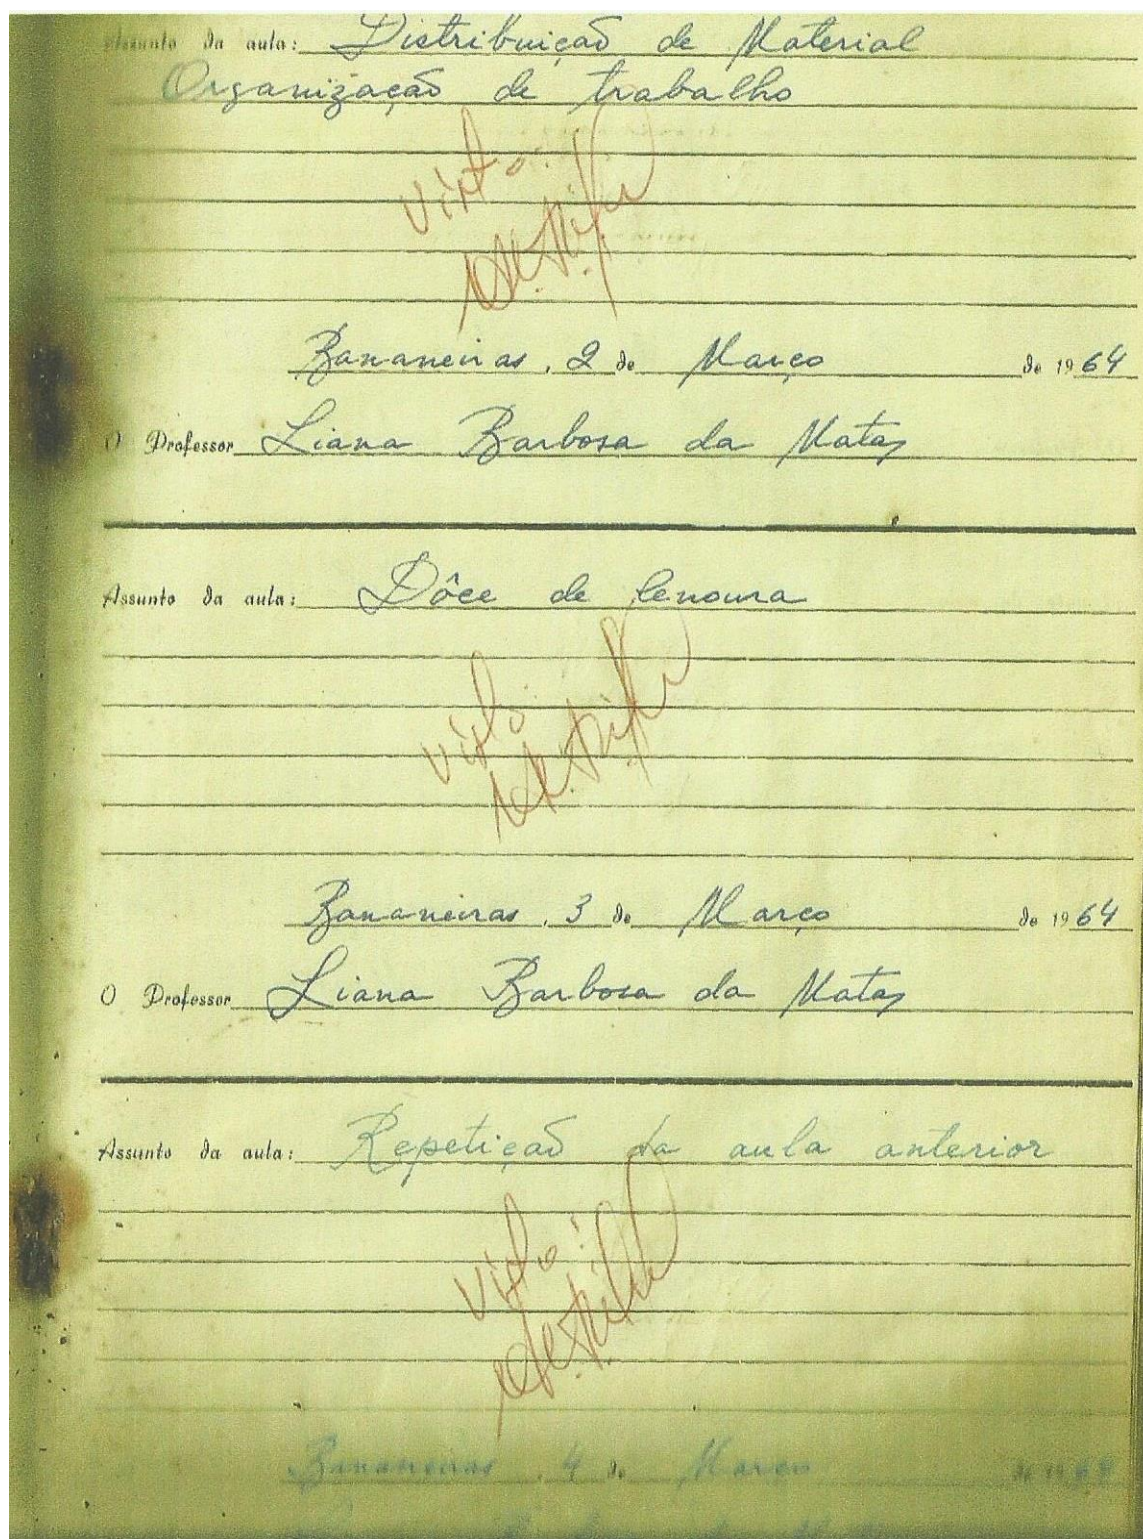 Assunto da aula: Distribuição de Material
Organização de trabalho
Visto:
Bananeiras, 2 de Março de 1964
O Professor Liana Barbosa da Mata
Assunto da aula: Dôce de Cenoura
Visto
Bananeiras, 3 de Março de 1964
O Professor Liana Barbosa da Mata
Assunto da aula: Repetição da aula anterior
Visto:
Bananeiras, 4 de Março de 1964